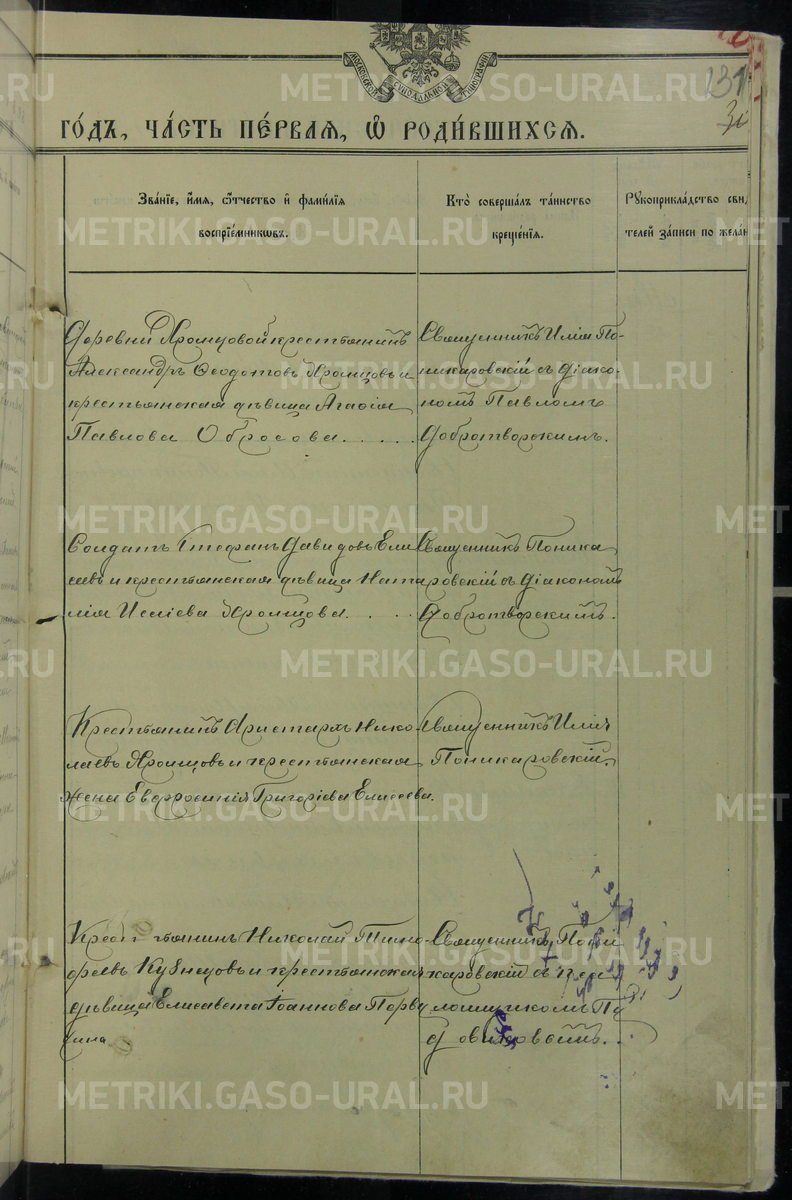 МОСКОВСКОЙ СѴНОДАЛЬНОЙ ТИПОГРАФІИ
131
ГО́ДЪ, ЧА́СТЬ ПЕ́РВАЯ, Ѽ РОДИ́ВШИХСЯ.
Зва́нїе, и҆́мя, ѻ҆́тчество и҆ фами́лїя воспрїе́мникѡвъ.
Кто̀ соверша́лъ та́инство креще́нїя.
Рꙋкоприкла́дство сви́дѣ- телей за́писи по жела́н
Деревни Хромцовой крестьянинъ
Александръ Ѳеодотовъ Хромцовъ и
крестьянская дѣвица Агаѳія
Павлова Обросова . . . . .
Священникъ Илія По-
никаровскій съ діако-
номъ Павломъ
Добротворскимъ.
Солдатъ Стефанъ Давидовъ Ели
сѣевъ и крестьянская дѣвица Ната
лія Исаіева Хромцова. . . .
Священникъ Поника
ровскій съ діакономъ
Добротворскимъ.
Крестьянинъ Аристархъ Нико-
лаевъ Хромцовъ и крестьянская
жена Евфросинія Григоріева Елисеева.
Священникъ Илія
Поникаровскій.
Крестьянинъ Николай Тимо-
феевъ Кузнецовъ и крестьянская
дѣвица Елисавета Іоаннова Перву
шина
Священникъ Пони
каровскій съ псал
ломщикомъ
METRIKI.GASO-URAL.RU